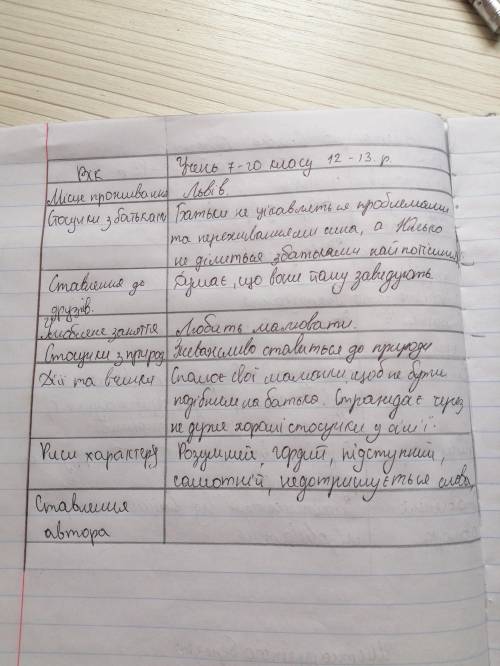 Вік Учень 7-го класу 12-13 р.
Місце проживання Львів
Стосунки з батьками Батьки не цікавляться проблемами
та переживаннями сина, а
не ділиться з батьками найпотішним.
Ставлення до Думає, що вони йому завидують
друзів.
Улюблене заняття Любить малювати.
Стосунки з природ Зневажливо ставиться до природи
Дії та вчинки Спалює свої малюнки щоб не бути
подібним на батька. Страждає через
не дуже хороші стосунки у сім'ї.
Риси характеру Розумний, гордий, підступний,
самотній, недотримується слова,
Ставлення
автора